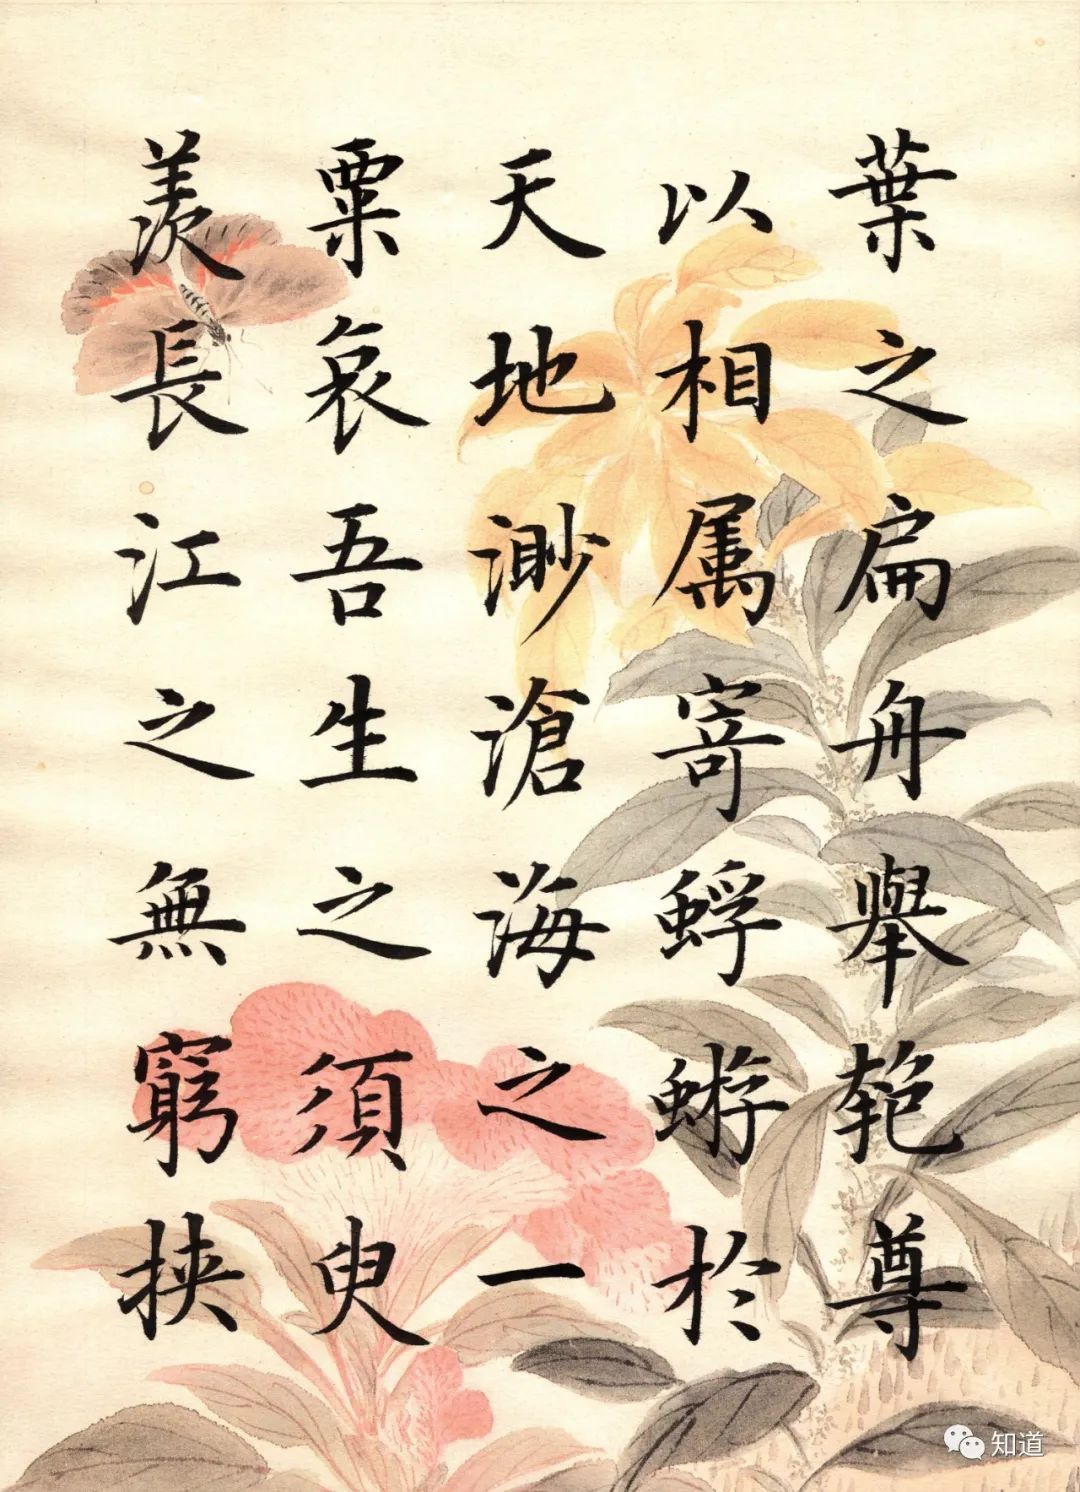 葉之扁舟舉匏尊
以相属寄蜉蝣於
天地渺滄海之一
粟哀吾生之須臾
羨長江之無窮挟
知道